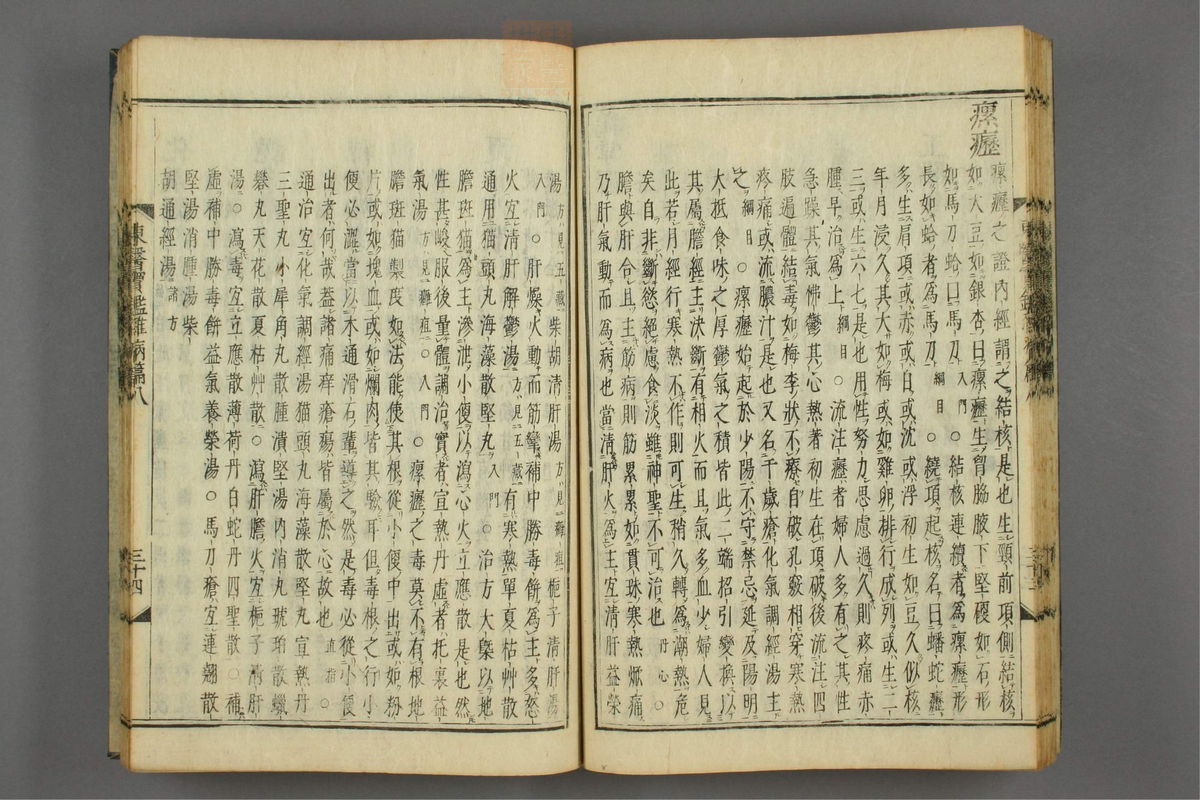 瘰癧
瘰癧之證內經謂之結核是也生頸前項側結核
如大豆如銀杏曰瘰癧生胷脇腋下堅硬如石形
如馬刀蛤曰馬刀入門○結核連續者爲瘰癧形
長如蛤者爲馬刀綱目○繞項起核名曰蟠蛇癧
多生肩項或赤或白或沈或浮初生如豆久似核
年月浸久其大如梅或如雞卵排行成列或生二
三或生六七是也用性努力思慮過久則疼痛赤
腫早治爲上綱目○流注癧者婦人多有之其性
急躁其氣怫鬱其心熱著初生在項破後流注四
肢遍體結毒如梅李狀不療自破孔竅相穿寒熱
疼痛或流膿汁是也又名千歲瘡化氣調經湯主
之綱目○瘰癧始起於少陽不守禁忌延及陽明
大抵食味之厚鬱氣之積皆此二端招引變換以
其屬膽經主決斷有相火而且氣多血少婦人見
此若月經行寒熱不作則可生稍久轉爲潮熱危
矣自非斷慾絕慮食淡雖神聖不可治也丹心○
膽與肝合且主筋病則筋累累如貫珠寒熱焮痛
乃肝氣動而爲病也當清肝火爲主宜清肝益榮
湯方見五藏柴胡清肝湯方見癰疽梔子清肝湯
入門○肝燥火動而筋攣補中勝毒餅爲主多怒
火宜清肝解鬱湯方見五藏有寒熱單夏枯艸散
通用猫頭丸海藻散堅丸入門○治方大槩以地
膽班猫爲主滲泄小便以瀉心火立應散是也然
性甚峻服後量體調治實者宜熱丹虛者托裏益
氣湯方見癰疽○入門○瘰癧之毒莫不有根地
膽班猫製度如法能使其根從小便中出或如粉
片或如塊血或如爛肉皆其驗耳但毒根之行小
便必澀當以木通滑石輩導之然是毒必從小便
出者何哉蓋諸痛痒瘡瘍皆屬於心故也直指○
通治宜化氣調經湯猫頭丸海藻散堅丸宣熱丹
三聖丸小犀角丸散腫潰堅湯內消丸琥珀散蠟
礬丸天花散夏枯艸散○瀉肝膽火宜梔子清肝
湯○瀉毒宜立應散薄荷丹白蛇丹四聖散○補
虛補中勝毒餅益氣養榮湯○馬刀瘡宜連翹散
堅湯消腫湯柴
胡通經湯諸方
東醫寶鑑雜病篇八
三十四